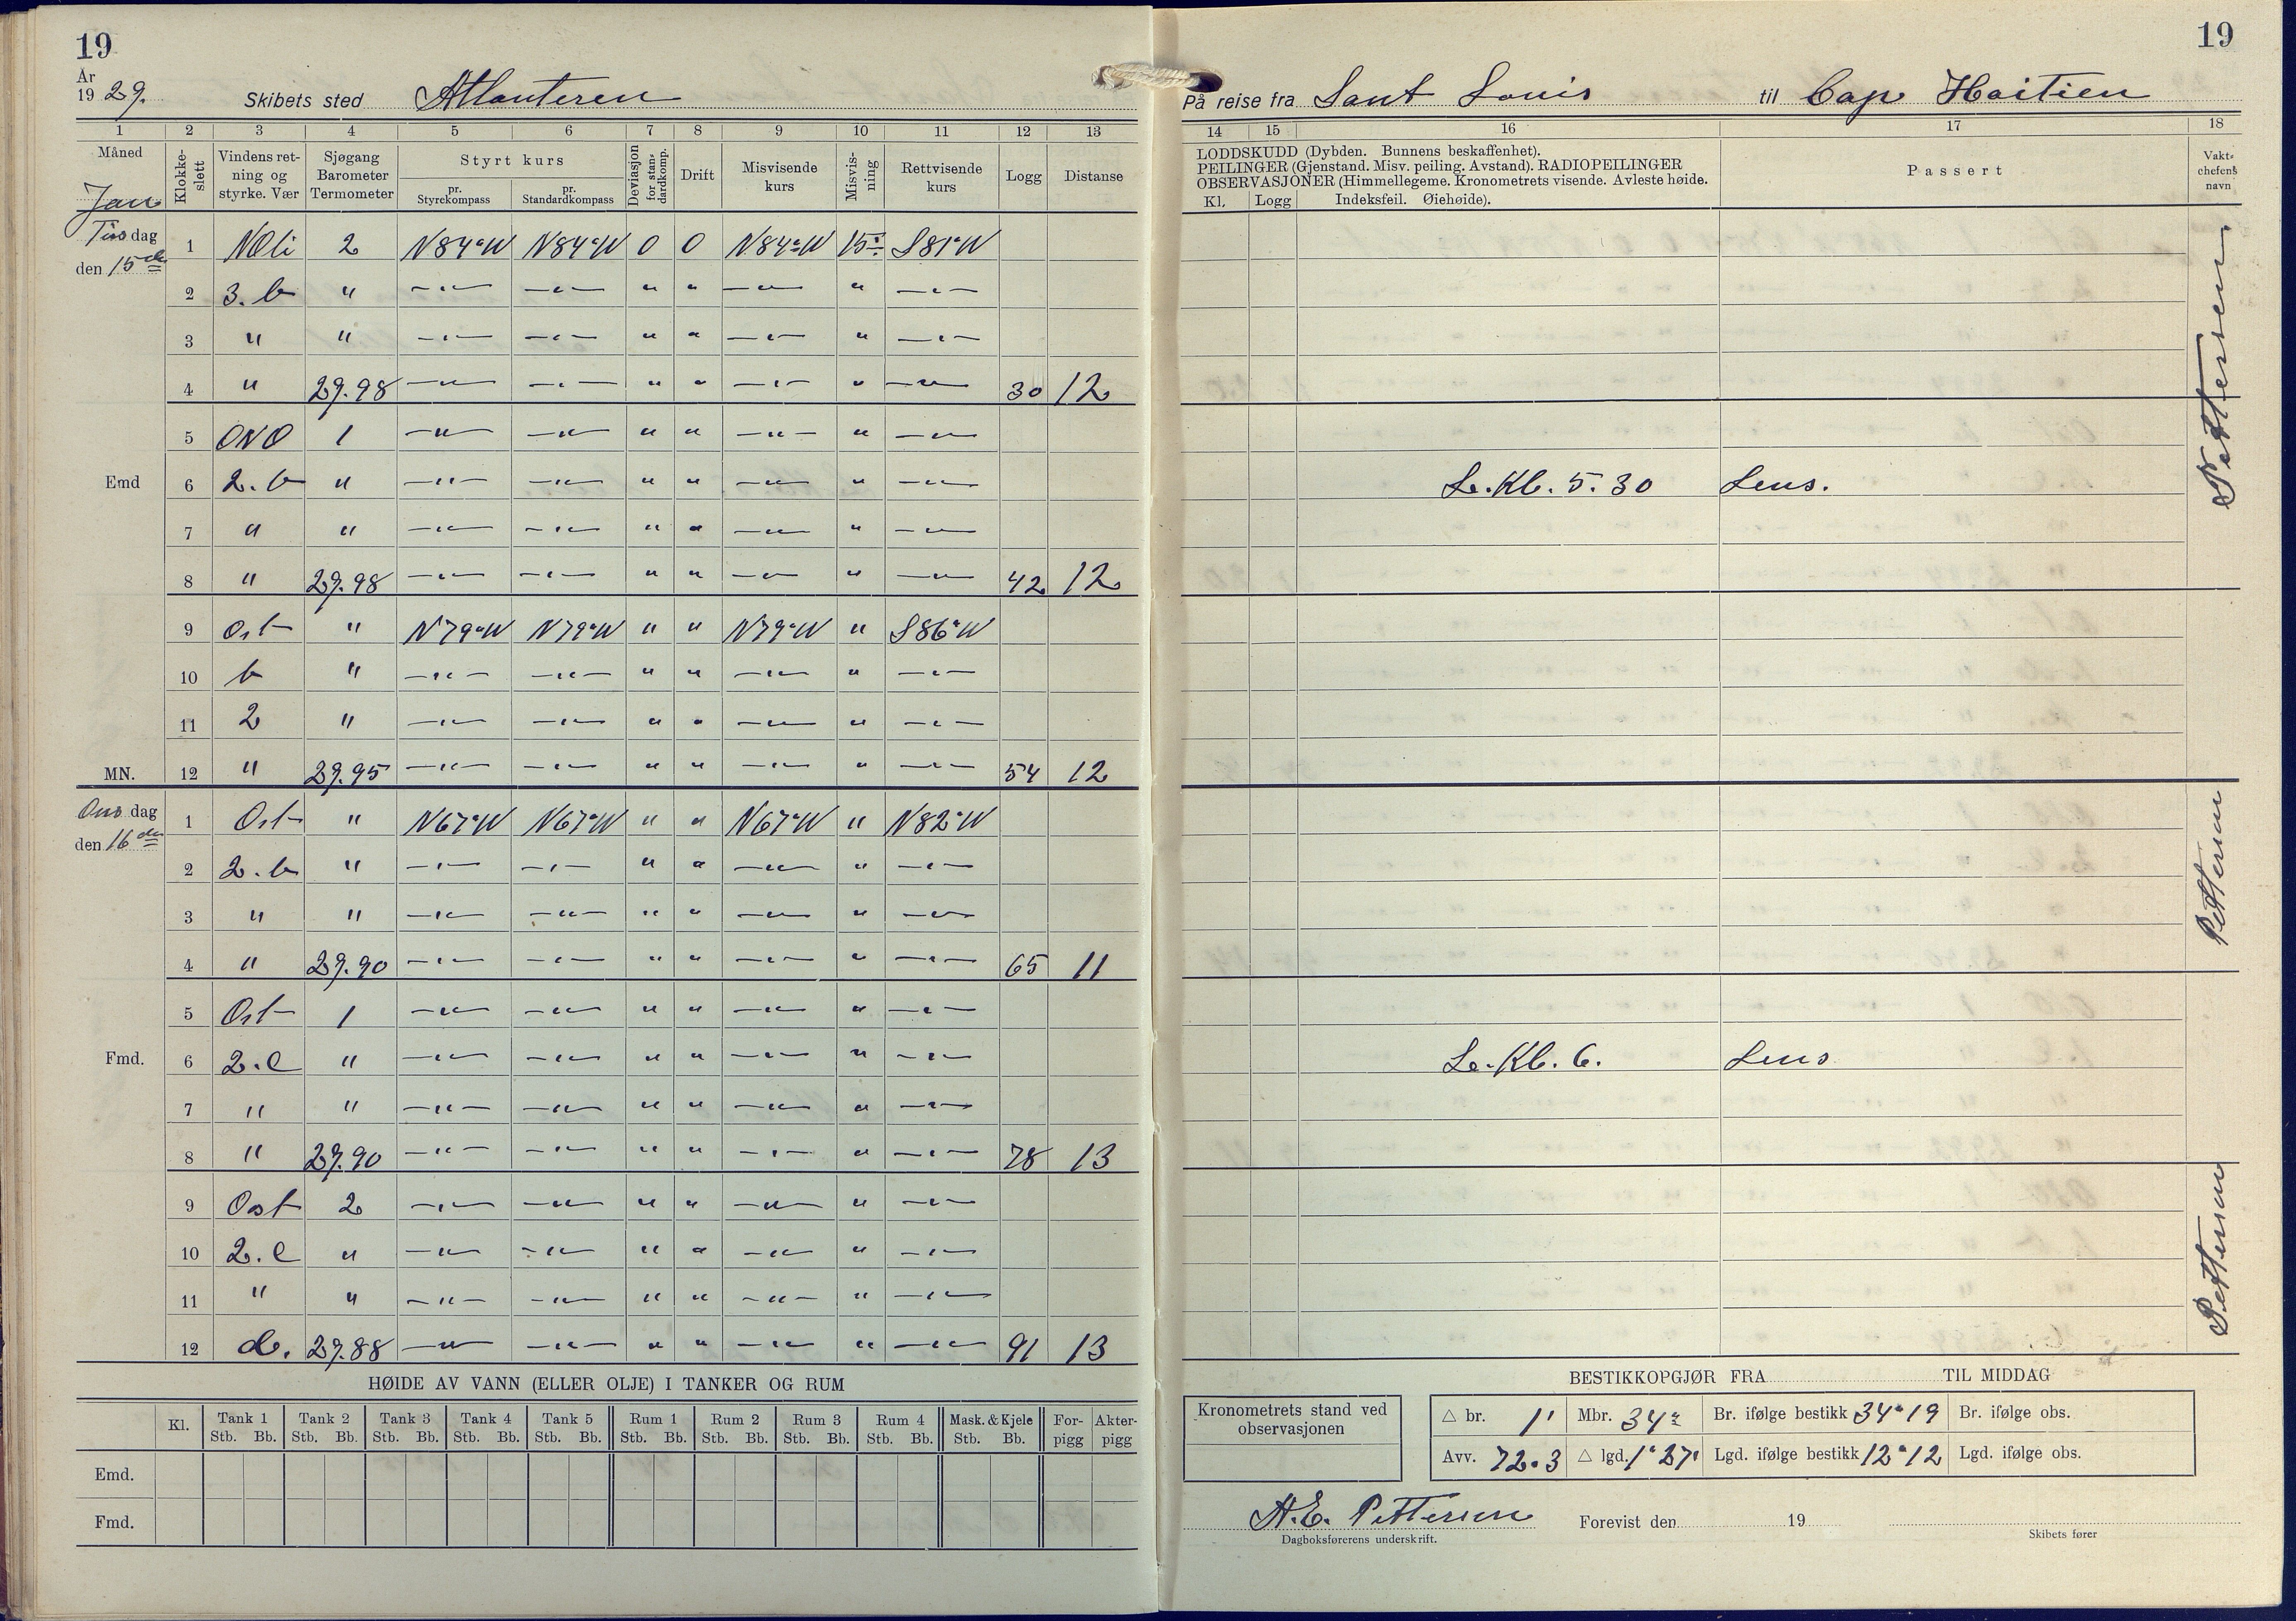 19
År
1929.
Skibets sted Atlanteren
1 2 3 4 5 6 7 8 9 10 11 12 13
Måned Klokke-slett Vindens ret-ning og styrke. Vær Sjøgang Barometer Termometer Styrt kurs pr. Styrekompass pr. Standardkompass Deviasjon for stan-dardkomp. Drift Misvisende kurs Misvis-ning Rettvisende kurs Logg Distanse
Jan
Tirsdag den 15de
1 NOli 2 N84°W N84°W 0 0 N84°W 15° S81°W
2 3. b " —"— —"— " " —"— " —"—
3 " " —"— —"— " " —"— " —"—
4 " 29.98 —"— —"— " " —"— " —"— 30 12
5 ONO 1 —"— —"— " " —"— " —"—
Emd 6 2. b " —"— —"— " " —"— " —"—
7 " " —"— —"— " " —"— " —"—
8 " 29.98 —"— —"— " " —"— " —"— 42 12
9 Ost " N79°W N79°W " " N79°W " S86°W
10 b " —"— —"— " " —"— " —"—
11 2 " —"— —"— " " —"— " —"—
MN. 12 " 29.95 —"— —"— " " —"— " —"— 54 12
Onsdag den 16de
1 Ost " N67°W N67°W " " N67°W " N82°W
2 2. b " —"— —"— " " —"— " —"—
3 " " —"— —"— " " —"— " —"—
4 " 29.90 —"— —"— " " —"— " —"— 65 11
5 Ost 1 —"— —"— " " —"— " —"—
Fmd. 6 2. c " —"— —"— " " —"— " —"—
7 " " —"— —"— " " —"— " —"—
8 " 29.90 —"— —"— " " —"— " —"— 78 13
9 Ost 2 —"— —"— " " —"— " —"—
10 2. c " —"— —"— " " —"— " —"—
11 " " —"— —"— " " —"— " —"—
12 29.88 —"— —"— " " —"— " —"— 91 13
HØIDE AV VANN (ELLER OLJE) I TANKER OG RUM
Kl. Tank 1 Tank 2 Tank 3 Tank 4 Tank 5 Rum 1 Rum 2 Rum 3 Rum 4 Mask. & Kjele For-pigg Akter-pigg
Stb. Bb. Stb. Bb. Stb. Bb. Stb. Bb. Stb. Bb. Stb. Bb. Stb. Bb. Stb. Bb. Stb. Bb. Stb. Bb.
Emd.
Fmd.
19
På reise fra Sant Louis til Cap Haitien
14 15 16 17 18
LODDSKUDD (Dybden. Bunnens beskaffenhet).
PEILINGER (Gjenstand. Misv. peiling. Avstand). RADIOPEILINGER
OBSERVASJONER (Himmellegeme. Kronometrets visende. Avleste høide.
Kl. Logg Indeksfeil. Øiehøide).
Passert
Vakt-chefens navn
Pettersen
Kl. 5.30 Lens.
Pettersen
Kl. 6. Lens
Pettersen
BESTIKKOPGJØR FRA TIL MIDDAG
Kronometrets stand ved observasjonen
△ br. 1' Mbr. 34° Br. ifølge bestikk 34°19 Br. ifølge obs.
Avv. 72.3 △ lgd. 1°27' Lgd. ifølge bestikk 12°12 Lgd. ifølge obs.
A.E. Pettersen
Dagboksførerens underskrift.
Forevist den 19
Skibets fører